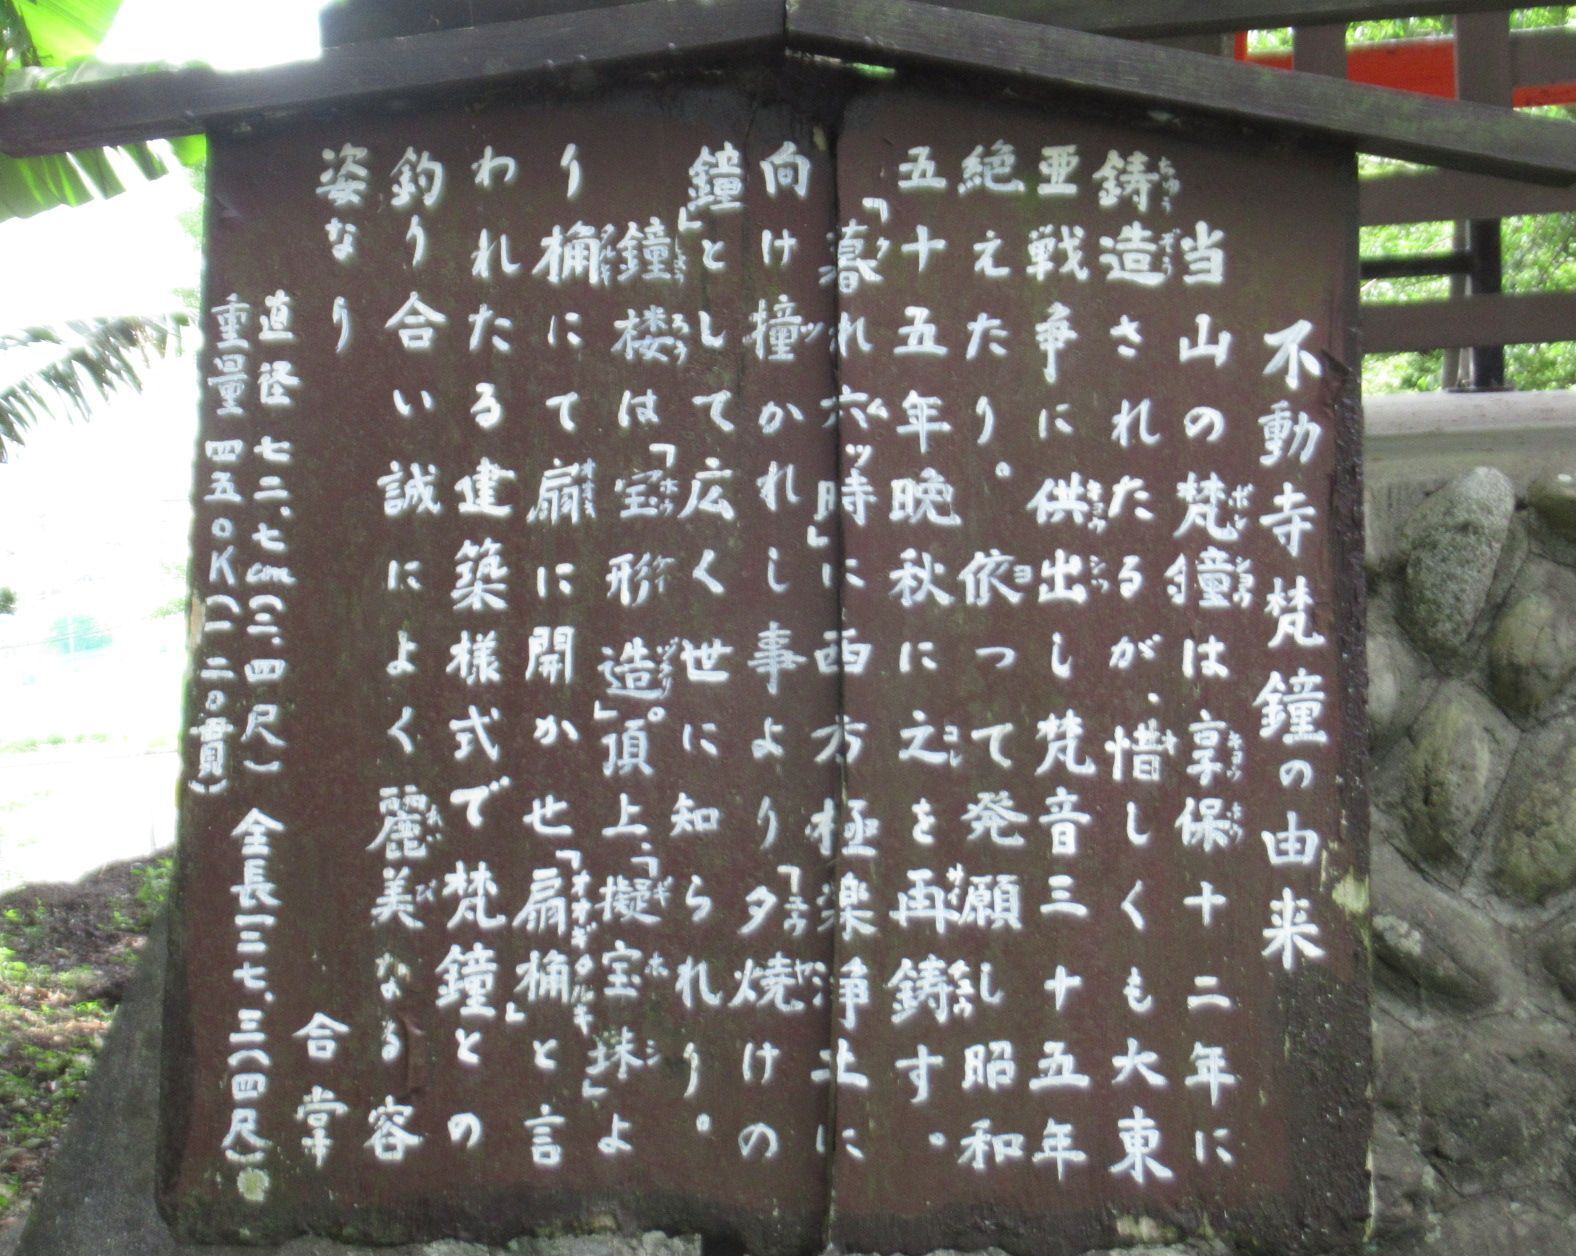 不動寺梵鐘の由来
当山の梵鐘は享保十二年に
鋳造されたるが、惜しくも大東
亜戦争に供出し梵音三十五年
絶えたり。依って発願し昭和
五十五年晩秋に之を再鋳す。
「暮れ六ッ時」に西方極楽浄土に
向け撞かれし事より「夕焼けの
鐘」として広く世に知られり。
鐘楼は「宝形造」。頂上、「擬宝珠」よ
り桷にて扇に開かせ「扇桷」と言
われたる建築様式で梵鐘との
釣り合い誠によく麗美なる容
姿なり 合掌
直径 七二、七cm(二、四尺) 全長一二七、三(四尺)
重量 四五〇K(一二〇貫)